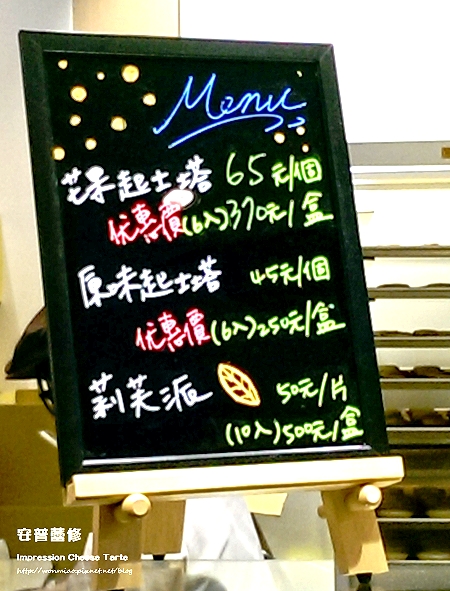 Menu
芒果起士塔 65元/個
优惠價(6入)370元/盒
原味起士塔 45元/個
优惠價(6入)250元/盒
莉芙派 50元/片
(10入)500元/盒
安普蕾修
Impression Cheese Torte
http://wonmiao.pixnet.net/blog